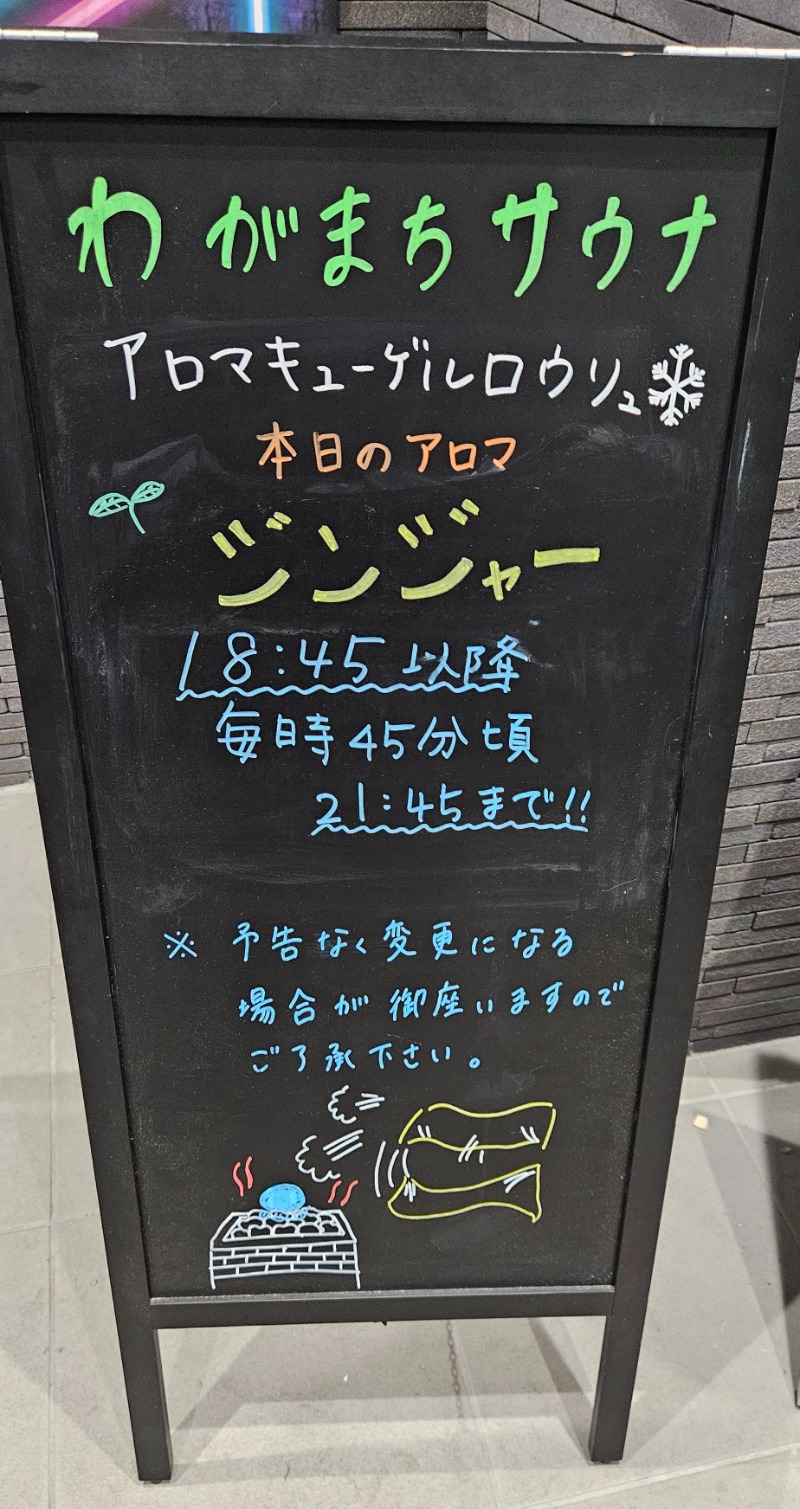 わがまちサウナ
アロマキューゲルロウリュ
本日のアロマ
ジンジャー
18:45以降
毎日時45分頃
21:45まで!!
※予告なく変更になる
場合が御座いますので
ご了承下さい。